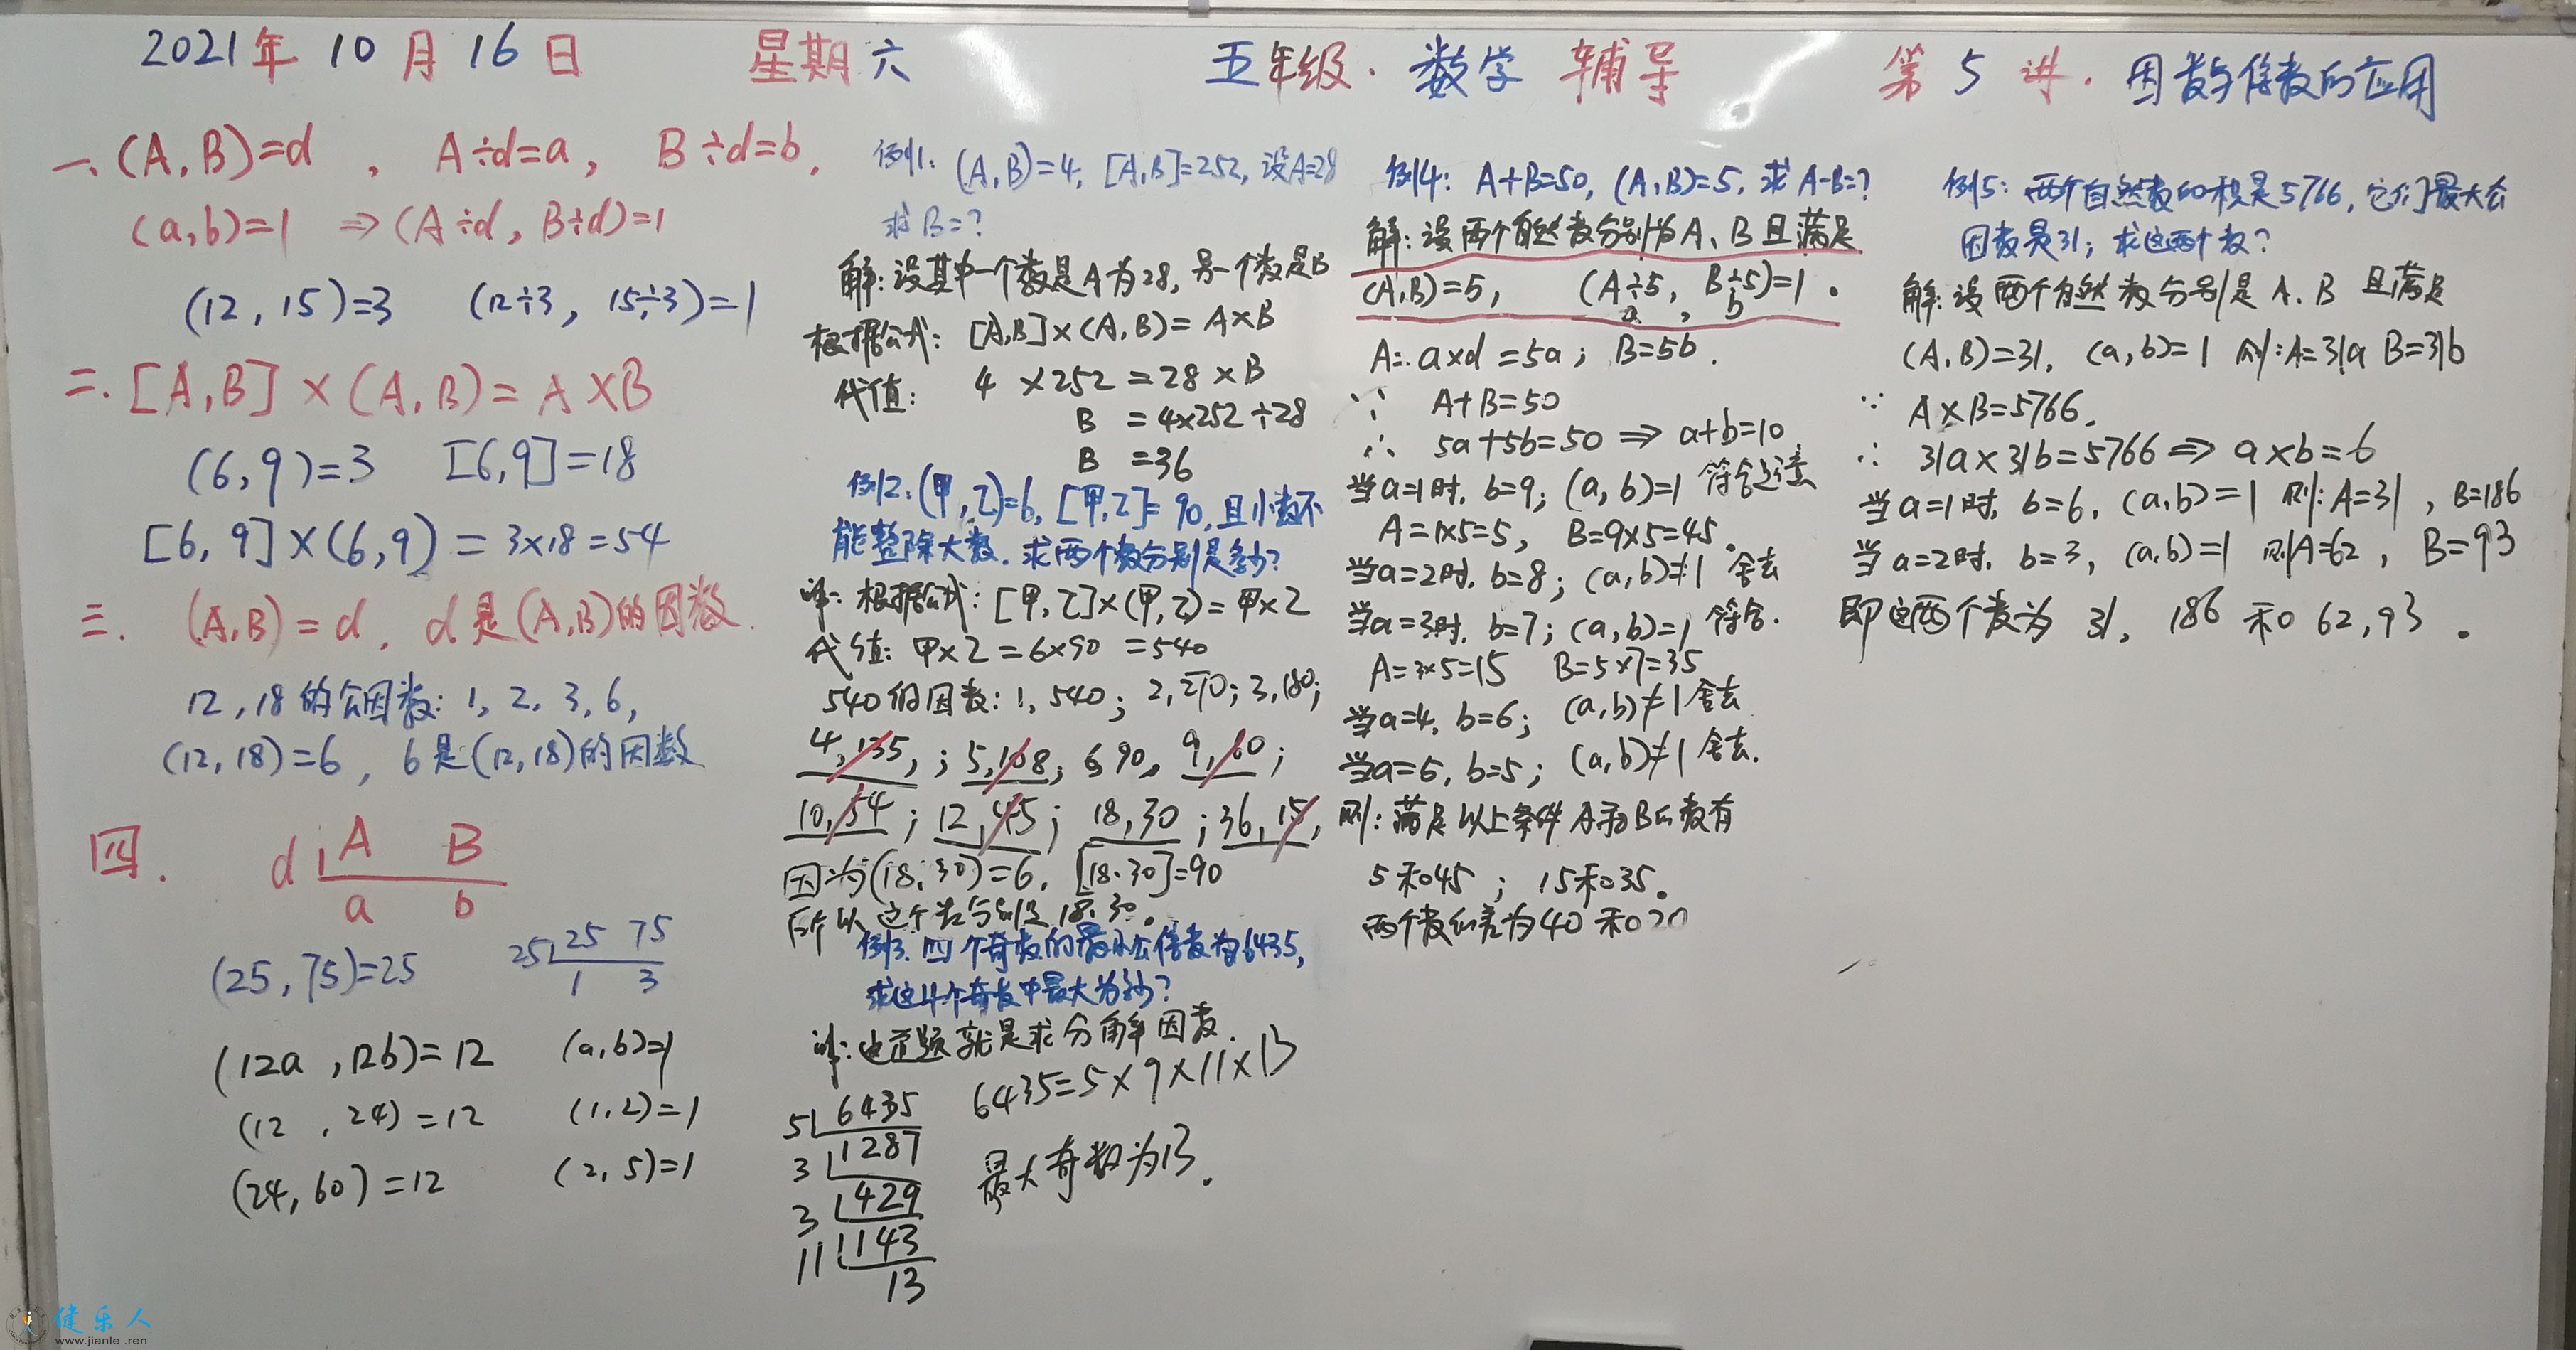 2021年10月16日 星期六 五年级·数学 辅导 第5讲·因数与倍数的应用
一、(A,B)=d , A÷d=a, B÷d=b,
(a,b)=1 ⇒(A÷d, B÷d)=1
(12,15)=3 (12÷3, 15÷3)=1
二.[A,B]×(A,B)=A×B
(6,9)=3 [6,9]=18
[6,9]×(6,9)=3×18=54
三. (A,B)=d, d是(A,B)的因数.
12,18的公因数:1,2,3,6,
(12,18)=6, 6是(12,18)的因数
四. d A B
a b
(25,75)=25 25 25 75
1 3
(12a,12b)=12 (a,b)=1
(12,24)=12 (1,2)=1
(24,60)=12 (2,5)=1
例1:(A,B)=4,[A,B]=252,设A=28
求B=?
解:设其中一个数是A为28,另一个数是B
根据公式:[A,B]×(A,B)=A×B
代值: 4×252=28×B
B=4×252÷28
B=36
例2:(甲,乙)=6,[甲,乙]=90,且小数不
能整除大数.求两个数分别是多少?
解:根据公式:[甲,乙]×(甲,乙)=甲×乙
代值:甲×乙=6×90=540
540的因数:1,540;2,270;3,180;
4,135,;5,108;6,90,9,60;
10,54;12,45;18,30;36,15,
因为(18,30)=6,[18,30]=90
所以这个数分别是18,30。
例3.四个奇数的最小公倍数为6435,
求这4个奇数中最大为多少?
解:这道题就是求分解因数.
5 6435 6435=5×9×11×13
3 1287
3 429 最大奇数为13.
11 143
13
例4:A+B=50,(A,B)=5,求A-B=?
解:设两个自然数分别为A、B且满足
(A,B)=5, (A÷5, B÷5)=1。
a , b
A=a×d=5a; B=5b.
∵ A+B=50
∴ 5a+5b=50⇒a+b=10
当a=1时,b=9;(a,b)=1 符合题意
A=1×5=5, B=9×5=45。
当a=2时,b=8;(a,b)≠1 舍去
当a=3时,b=7;(a,b)=1 符合.
A=3×5=15 B=5×7=35
当a=4,b=6; (a,b)≠1舍去
当a=5,b=5; (a,b)≠1 舍去.
则:满足以上条件A和B的数有
5和45; 15和35。
两个数的差为40和20
例5:两个自然数的积是5766,它们最大公
因数是31;求这两个数?
解:设两个自然数分别是A、B 且满足
(A,B)=31, (a,b)=1 则:A=31a B=31b
∵ A×B=5766,
∴ 31a×31b=5766⇒a×b=6
当a=1时,b=6,(a,b)=1 则:A=31,B=186
当a=2时,b=3,(a,b)=1 则A=62,B=93
即这两个数为31,186和62,93.
健乐人
www.jianle.ren